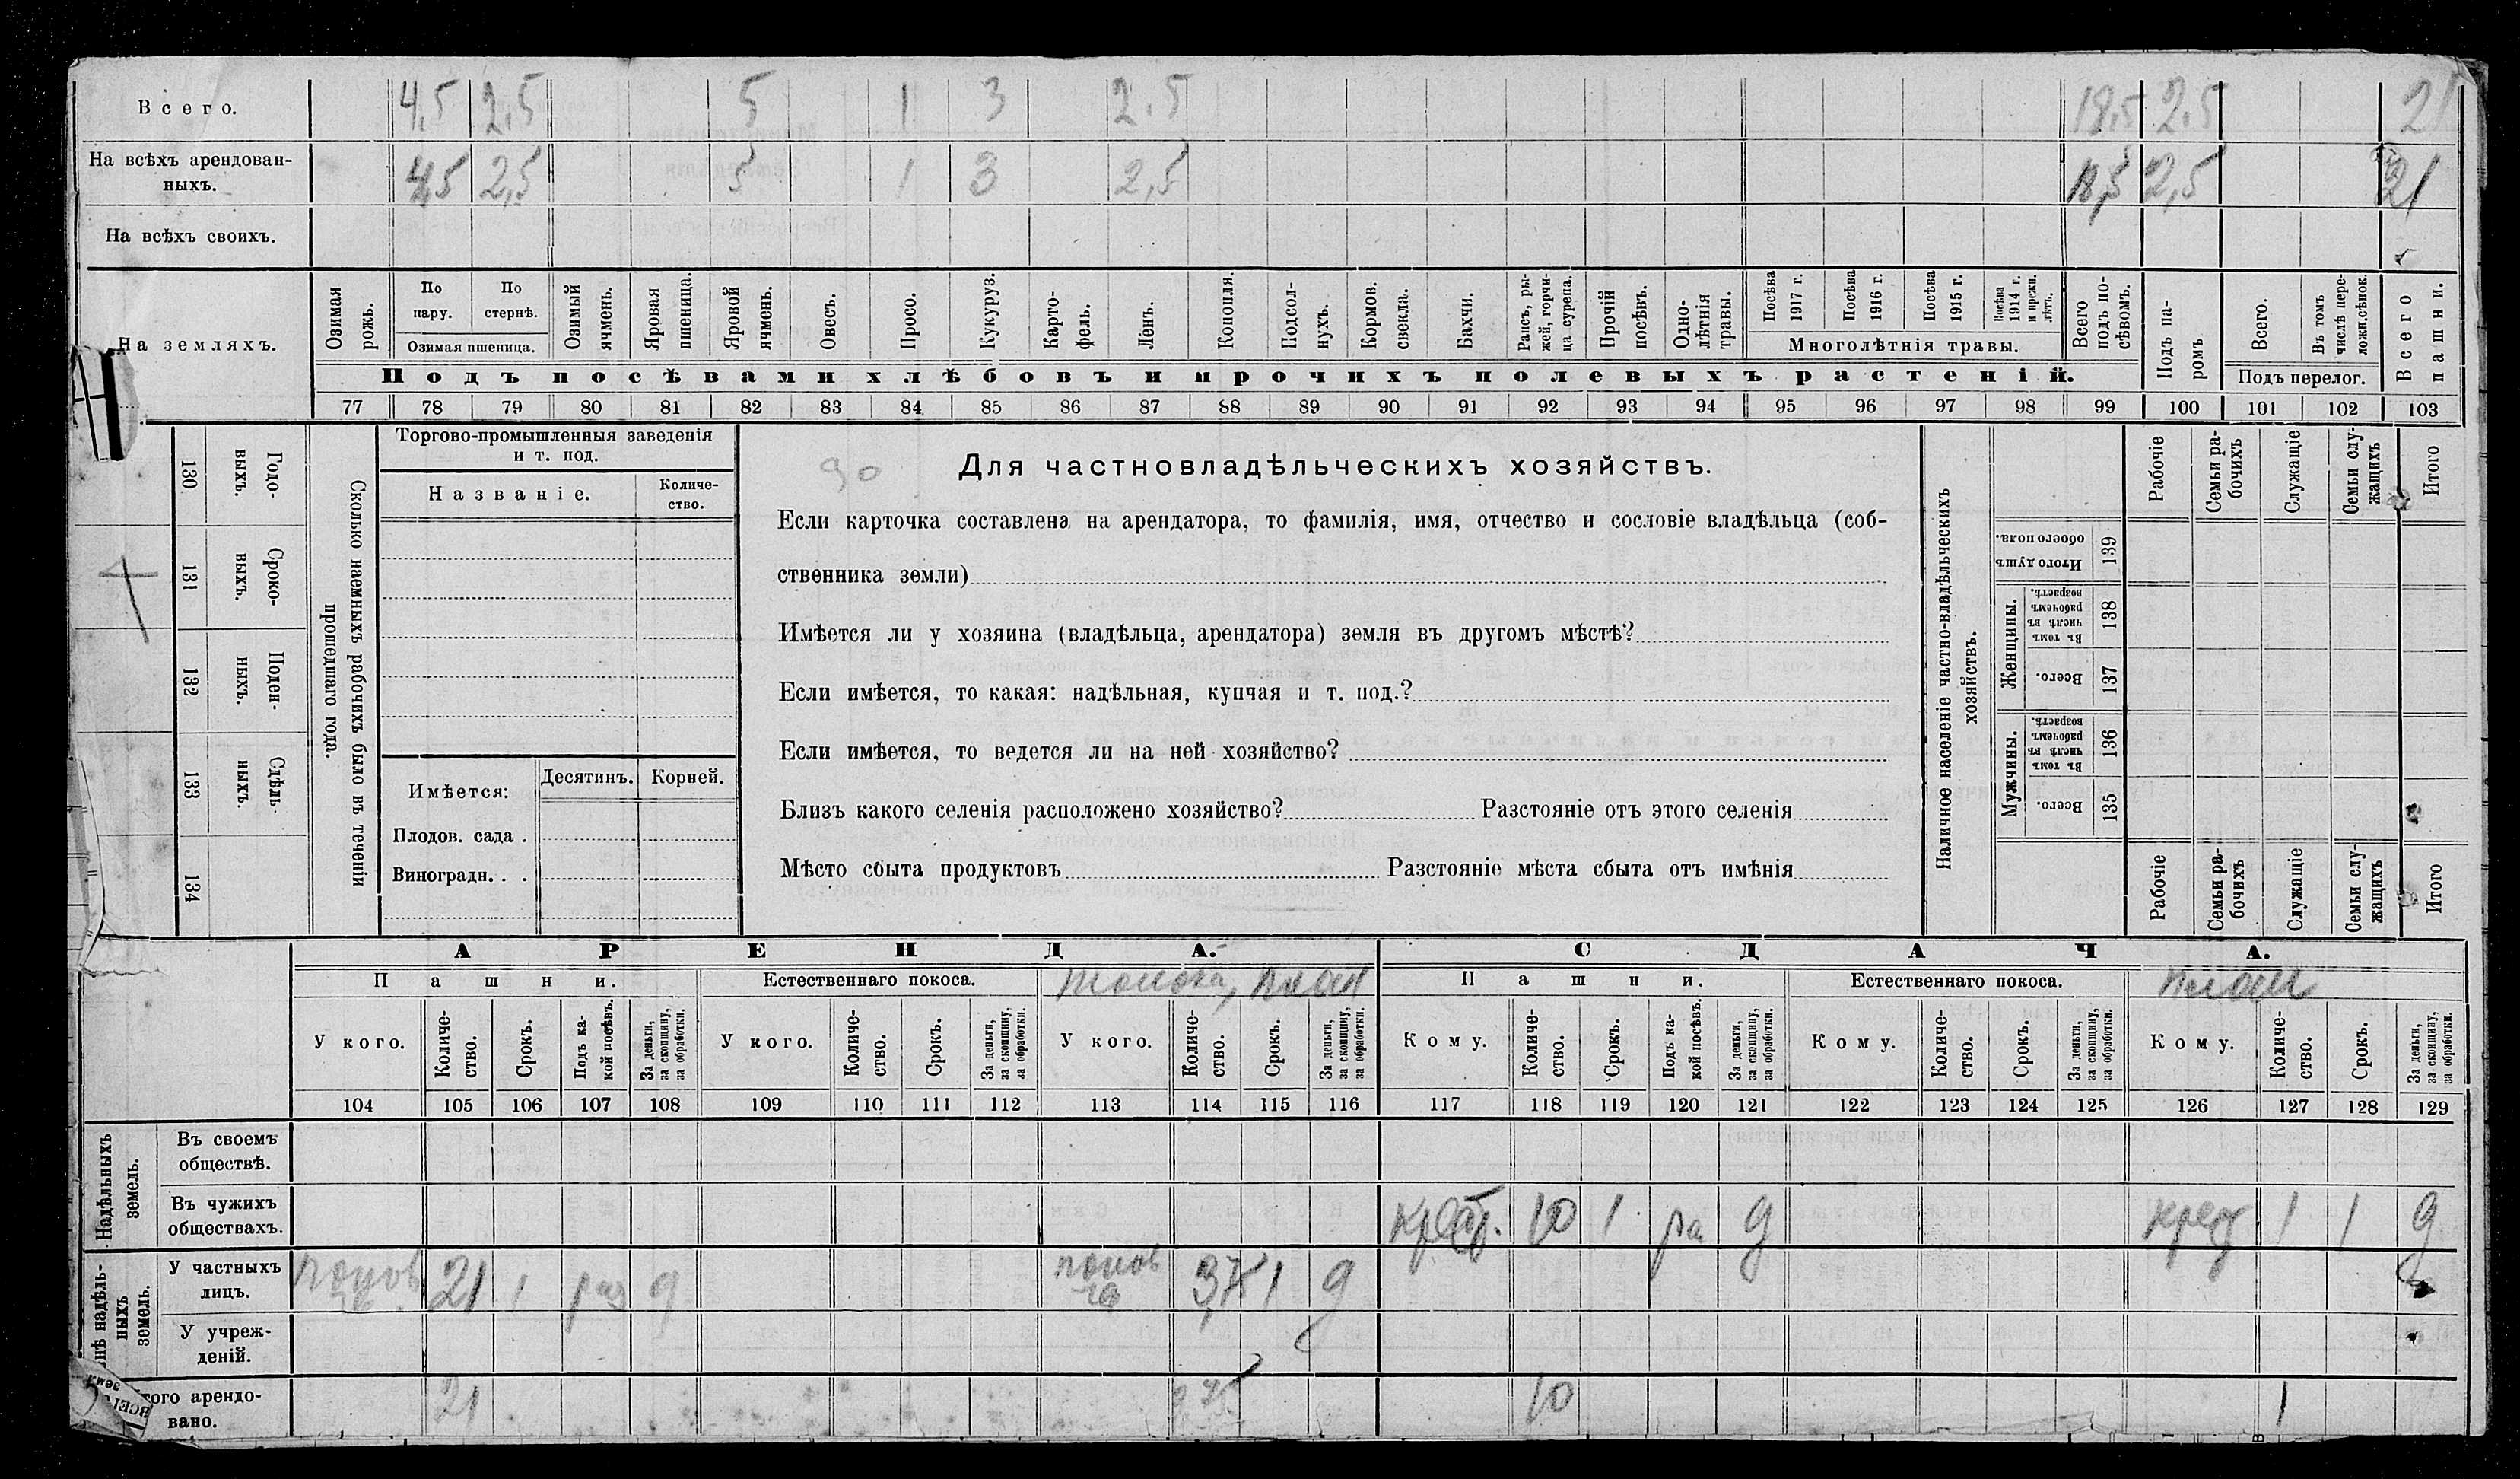 Всего. 4,5 2,5 5 1 3 2.5 18,5 2.5 21
На всѣхъ арендован-
ныхъ. 4,5 2,5 5 1 3 2,5 18,5 2,5 21
На всѣхъ своихъ.
На земляхъ.
Озимая рожь.
По пару.
По стернѣ.
Озимая пшеница.
Озимый ячмень.
Яровая пшеница.
Яровой ячмень.
Овесъ.
Просо.
Кукуруз.
Карто-
фель.
Ленъ.
Конопля.
Подсол-
нухъ.
Кормов.
свекла.
Бахчи.
Рапсъ, ры-
жей, горчи-
ца сурепа.
Прочій
посѣвъ.
Одно-
лѣтнія
травы.
Посѣва
1917 г.
Посѣва
1916 г.
Посѣва
1915 г.
Посѣва
1914 г.
и прежн.
лѣтъ.
Многолѣтнія травы.
Всего
подъ по-
сѣвомъ.
Подъ па-
ромъ
Всего.
Въ томъ
числѣ пере-
ложн.сѣнок.
Подъ перелог.
Всего
пашни.
Подъ посѣвами хлѣбовъ и прочихъ полевыхъ растеній.
77 78 79 80 81 82 83 84 85 86 87 88 89 90 91 92 93 94 95 96 97 98 99 100 101 102 103
130 Годо-
выхъ.
131 Сроко-
выхъ.
132 Поден-
ныхъ.
133 Сдѣль-
ныхъ.
134
Сколько наемныхъ рабочихъ было въ теченіи
прошедшаго года.
Торгово-промышленныя заведенія
и т. под.
Названіе.
Количе-
ство.
Имѣется:
Десятинъ.
Корней.
Плодов. сада .
Виноградн. . .
90
Для частновладѣльческихъ хозяйствъ.
Если карточка составлена на арендатора, то фамилія, имя, отчество и сословіе владѣльца (соб-
ственника земли)
Имѣется ли у хозяина (владѣльца, арендатора) земля въ другомъ мѣстѣ?
Если имѣется, то какая: надѣльная, купчая и т. под.?
Если имѣется, то ведется ли на ней хозяйство?
Близъ какого селенія расположено хозяйство? Разстояніе отъ этого селенія
Мѣсто сбыта продуктовъ Разстояніе мѣста сбыта отъ имѣнія
Наличное населеніе частно-владѣльческихъ
хозяйствъ.
Рабочіе
Семьи ра-
бочихъ
Служащіе
Семьи слу-
жащихъ
Итого
Итого душъ
обоего пола.
139
Женщины.
Въ томъ
числѣ въ
рабочемъ
возрастѣ.
138
Всего.
137
Мужчины.
Въ томъ
числѣ въ
рабочемъ
возрастѣ.
136
Всего.
135
Рабочіе
Семьи ра-
бочихъ
Служащіе
Семьи слу-
жащихъ
Итого
АРЕНДА. СДАЧА.
Пашни. Естественнаго покоса. Пашни. Естественнаго покоса.
У кого.
Количе-
ство.
Срокъ.
Подъ ка-
кой посѣвъ.
За деньги,
за скопщину,
за обработки.
У кого.
Количе-
ство.
Срокъ.
За деньги,
за скопщину,
за обработки.
У кого.
Количе-
ство.
Срокъ.
За деньги,
за скопщину,
за обработки.
Кому.
Количе-
ство.
Срокъ.
Подъ ка-
кой посѣвъ.
За деньги,
за скопщину,
за обработки.
Кому.
Количе-
ство.
Срокъ.
За деньги,
за скопщину,
за обработки.
Кому.
Количе-
ство.
Срокъ.
За деньги,
за скопщину,
за обработки.
104 105 106 107 108 109 110 111 112 113 114 115 116 117 118 119 120 121 122 123 124 125 126 127 128 129
Надѣльныхъ
земель.
Въ своемъ
обществѣ.
Въ чужихъ
обществахъ. 10 1 ра д 1 1 д
надѣль-
ныхъ
земель.
У частныхъ
лицъ. 21 1 раз д 1 д
У учреж-
деній.
арендо-
вано. 21 10 1